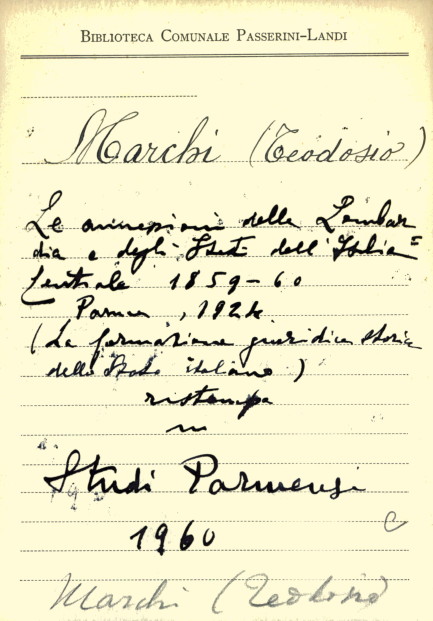 BIBLIOTECA COMUNALE PASSERINI-LANDI
Marchi (Teodosio)
Le annessioni della Lombar
dia e degli Stati dell'Italia
Centrale 1859-60
Parma, 1924
(La formazione giuridica storica
dello Stato italiano)
ristampa
in
Studi Parmensi
1960
C
Marchi (Teodosio)